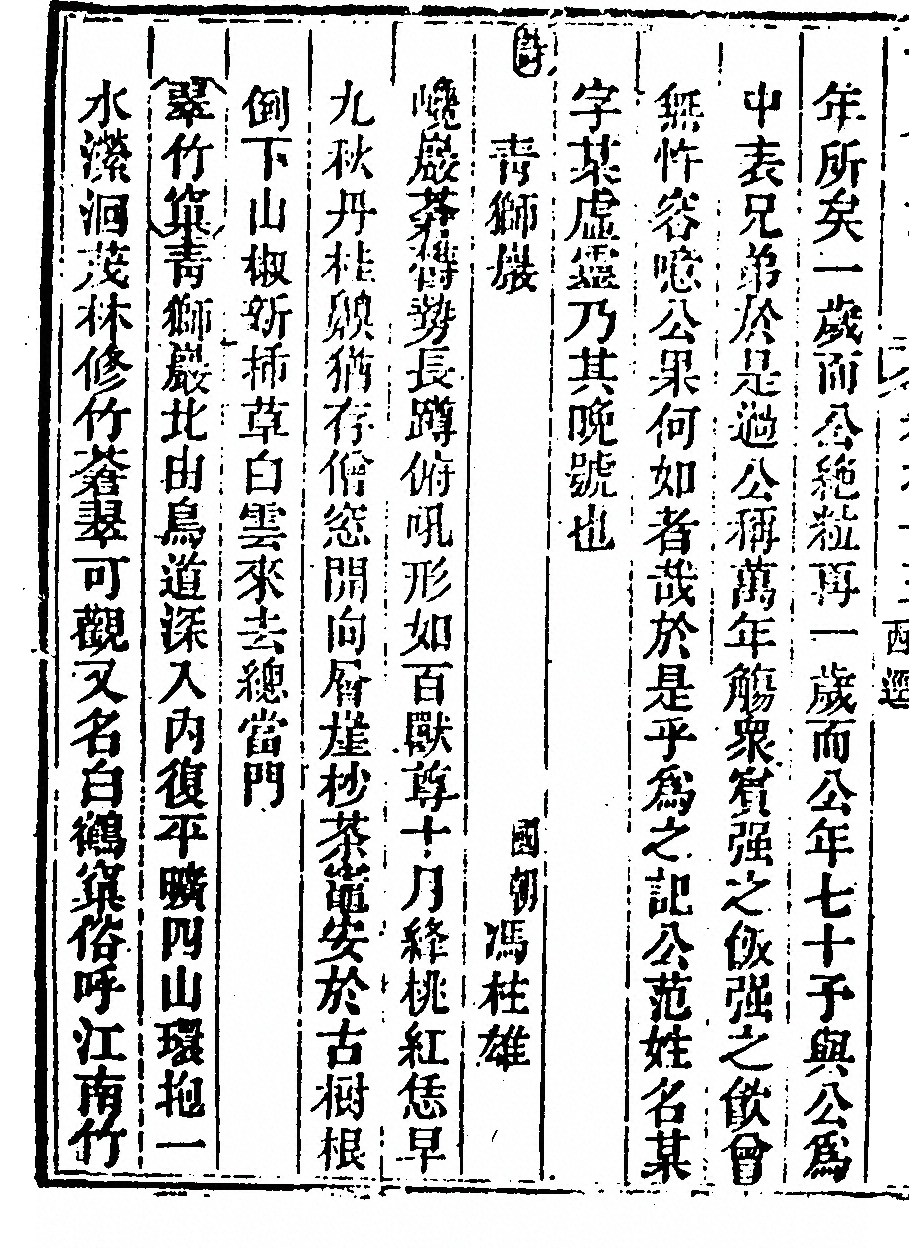 西遷
年所矣一歲而公絶粒再一歲而公年七十予與公爲
中表兄弟於是過公稱萬年觴衆賓强之飯强之飲曾
無怍容噫公果何如者哉於是乎爲之記公范姓名某
字某虚靈乃其晚號也
詩
青獅巖 國朝馮柱雄
巉巖莽舊勢長蹲俯吼形如百獸尊十月絳桃紅恁早
九秋丹桂馥猶存僧窓開向層崖杪茶竈安於古樹根
倒下山椒新插草白雲來去總當門
翠竹窠青獅巖北由鳥道深入內復平曠四山環抱一
水瀠洄茂林修竹蒼翠可觀又名白鶴窠俗呼江南竹